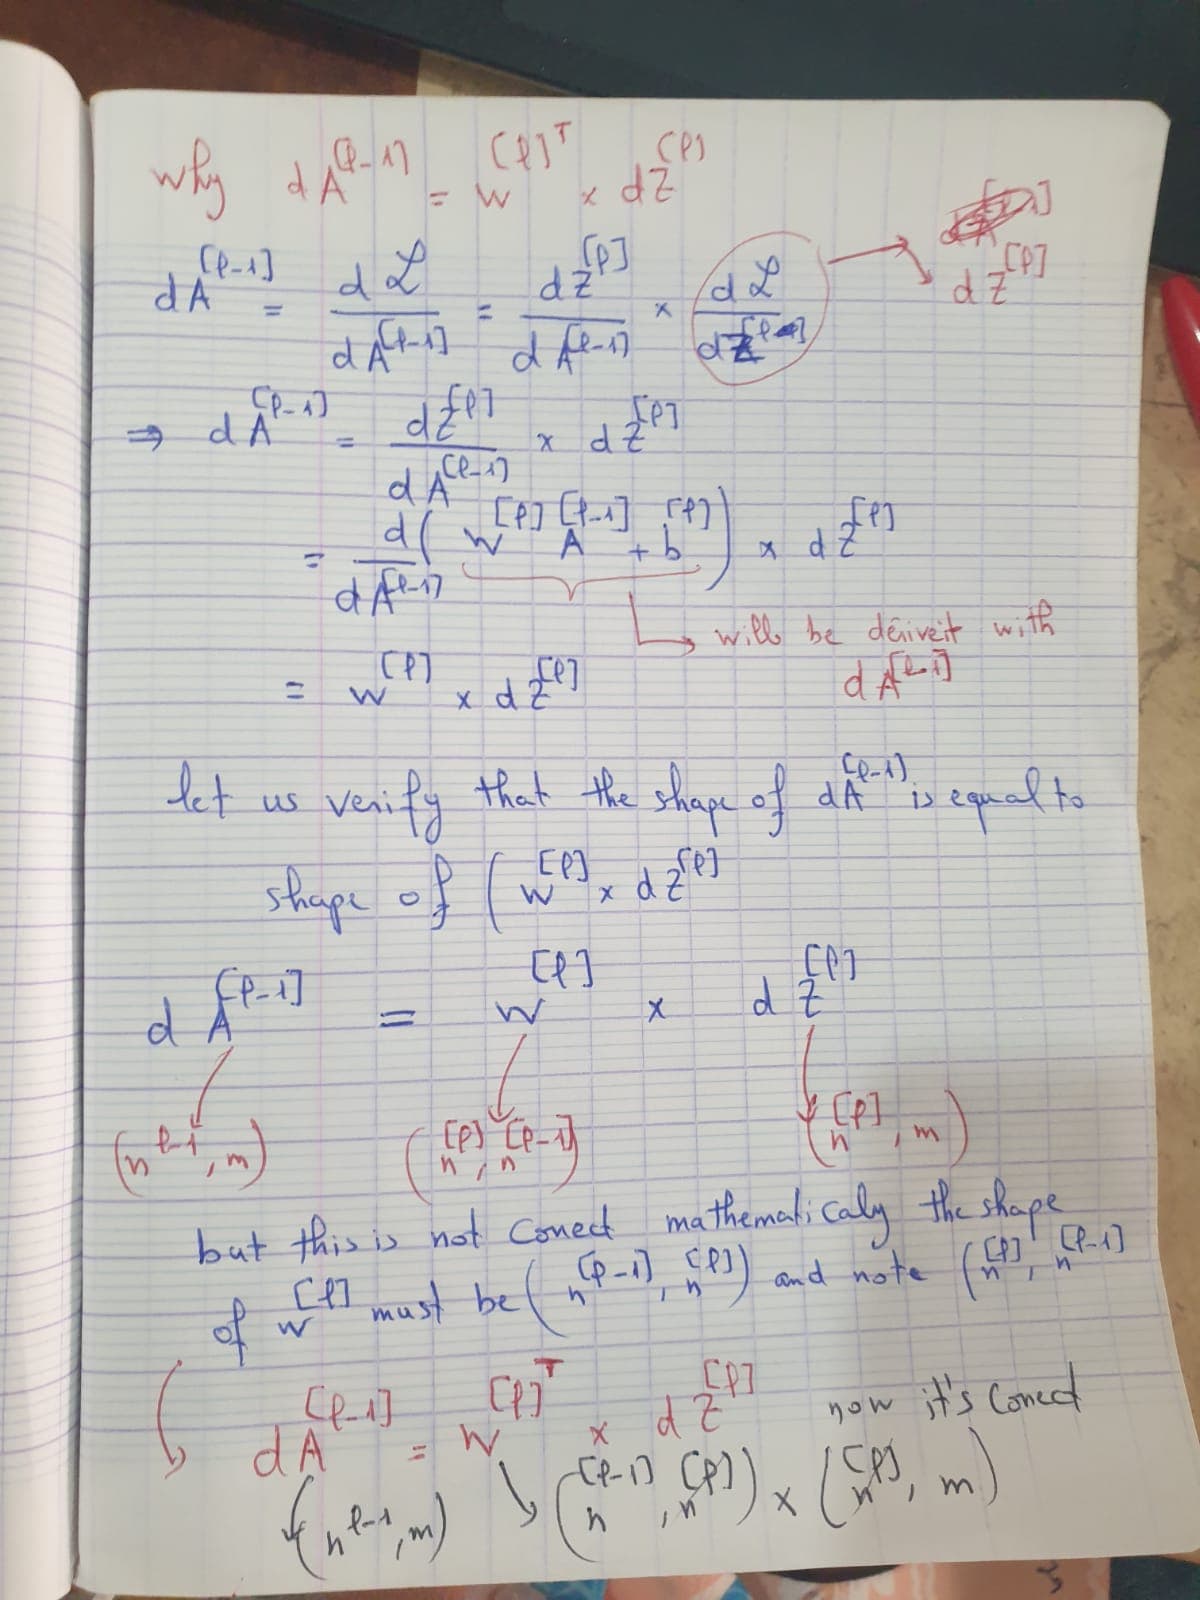 why dA^[l-1] = w^[l]T × dZ^[l]
dA^[l-1] = dℒ / dA^[l-1] = dZ^[l] / dA^[l-1] × dℒ / dZ^[l] → dZ^[l]
⇒ dA^[l-1] = dZ^[l] / dA^[l-1] × dZ^[l]
= d / dA^[l-1] (w^[l] A^[l-1] + b^[l]) × dZ^[l]
will be dériveit with
dA^[l-1]
= w^[l] × dZ^[l]
let us verify that the shape of dA^[l-1] is equal to
shape of (w^[l] × dZ^[l]
dA^[l-1] = w^[l] × dZ^[l]
(n^l-1, m) (n^[l], n^[l-1]) (n^[l], m)
but this is not conect mathematicaly the shape
of w^[l] must be (n^[l-1], n^[l]) and note (n^[l], n^[l-1]
dA^[l-1] = w^[l]T × dZ^[l] now it's conect
(n^l-1, m) (n^[l-1], n^[l]) × (n^[l], m)